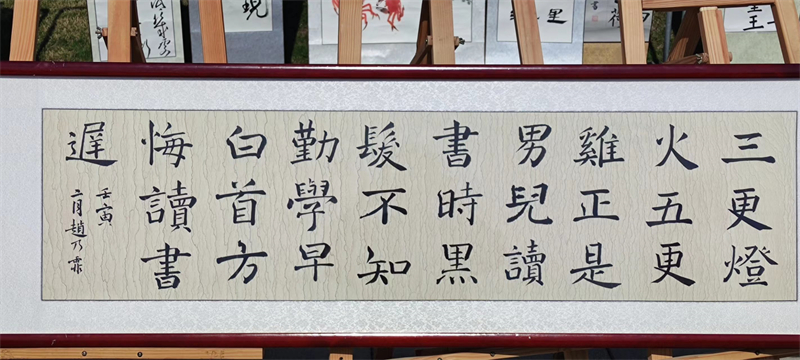 三更燈
火五更
雞正是
男兒讀
書時黑
髮不知
勤學早
白首方
悔讀書
遲
壬寅
二月趙乃霏